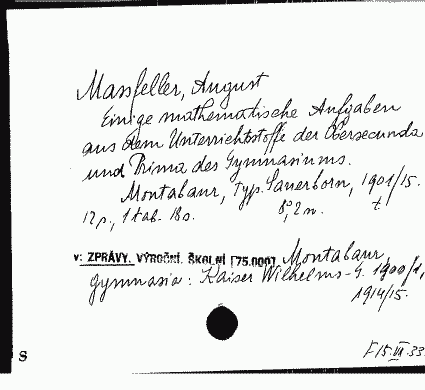 Massfeller, August
Einige mathematische Aufgaben
aus dem Unterrichtsstoffe der Obersecunda
und Prima des Gymnasiums.
Montabaur, Typ. Sauerborn, 1901/15.
12 p., 1 tab. 18 s. 8°, 2 n. t.
v: ZPRÁVY. VÝROČNÍ. ŠKOLNÍ [75.000]. Montabaur,
gymnasia: Kaiser Wilhelms-G. 1900/1,
1914/15.
S
F15.VI.33.